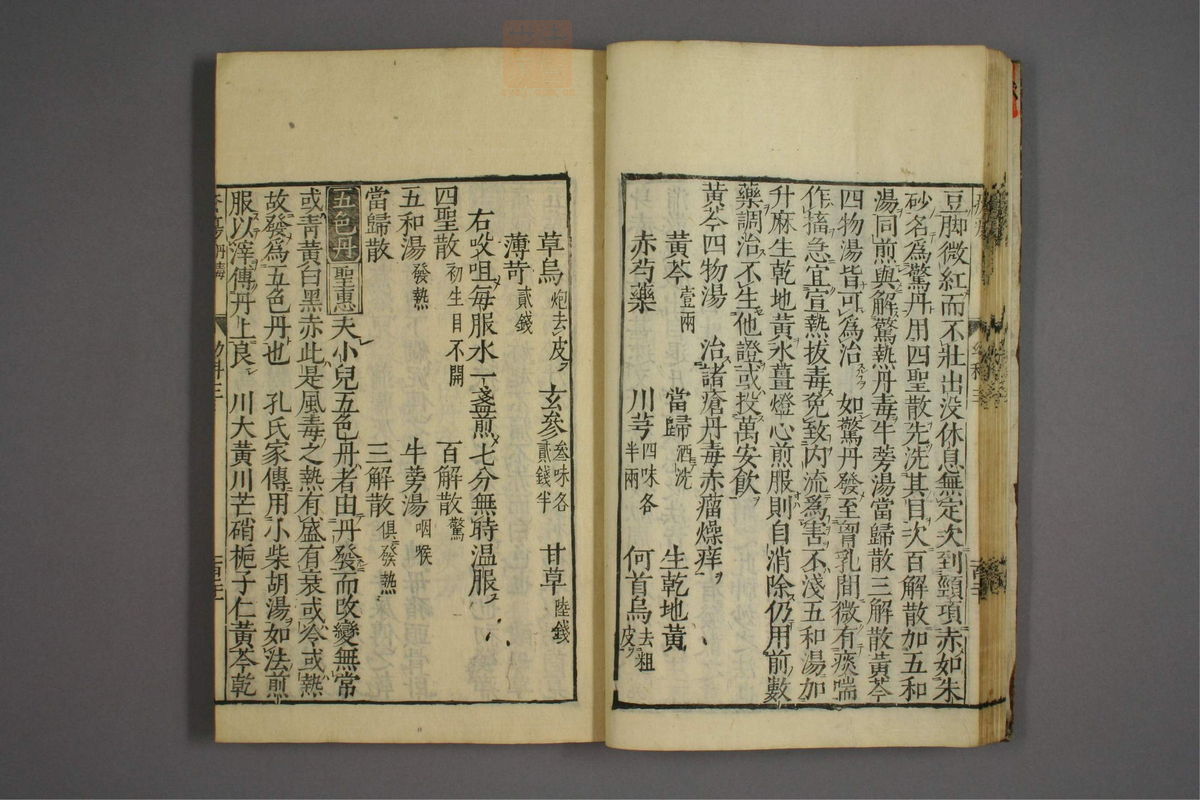 豆脚微紅而不壯出没休息無定次到頸項赤如朱
砂名爲驚丹用四聖散先洗其目次百解散加五和
湯同煎與解驚熱丹毒牛蒡湯當歸散三解散黃芩
四物湯皆可爲治　如驚丹發至胷乳間微有痰喘
作搐急宜宣熱拔毒免致内流爲害不淺五和湯加
升麻生乾地黃氷薑燈心煎服則自消除仍用前數
藥調治不生他證或投萬安飲
黃芩四物湯　治諸瘡丹毒赤瘤燥痒
黃芩壹兩　當歸酒洗　生乾地黃
赤芍藥　川芎四味各半兩　何首烏去粗皮
草烏炮去皮　玄參叁味各貳錢半　甘草陸錢
薄苛貳錢
右㕮咀每服水一盞煎七分無時温服
四聖散初生目不開　百解散驚
五和湯發熱　牛蒡湯咽喉
當歸散　三解散俱發熱
五色丹　聖惠　夫小兒五色丹者由丹發而改變無常
或青黃白黑赤此是風毒之熱有盛有衰或冷或熱
故發爲五色丹也　孔氏家傳用小柴胡湯如法煎
服以滓傅丹上良　川大黃川芒硝梔子仁黃芩乾